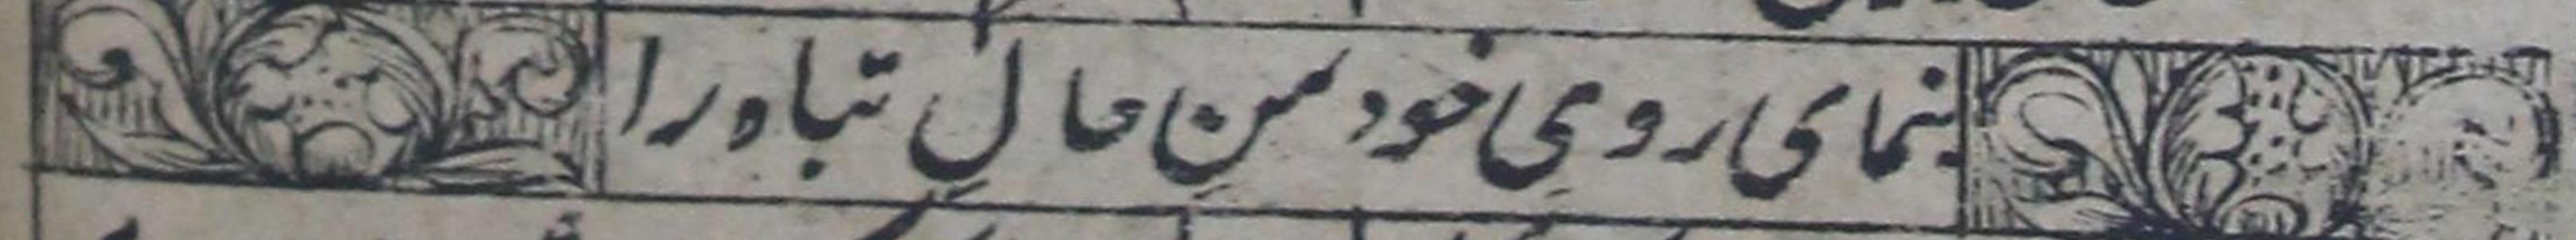 بنمای روی خود بمن حال تباه را